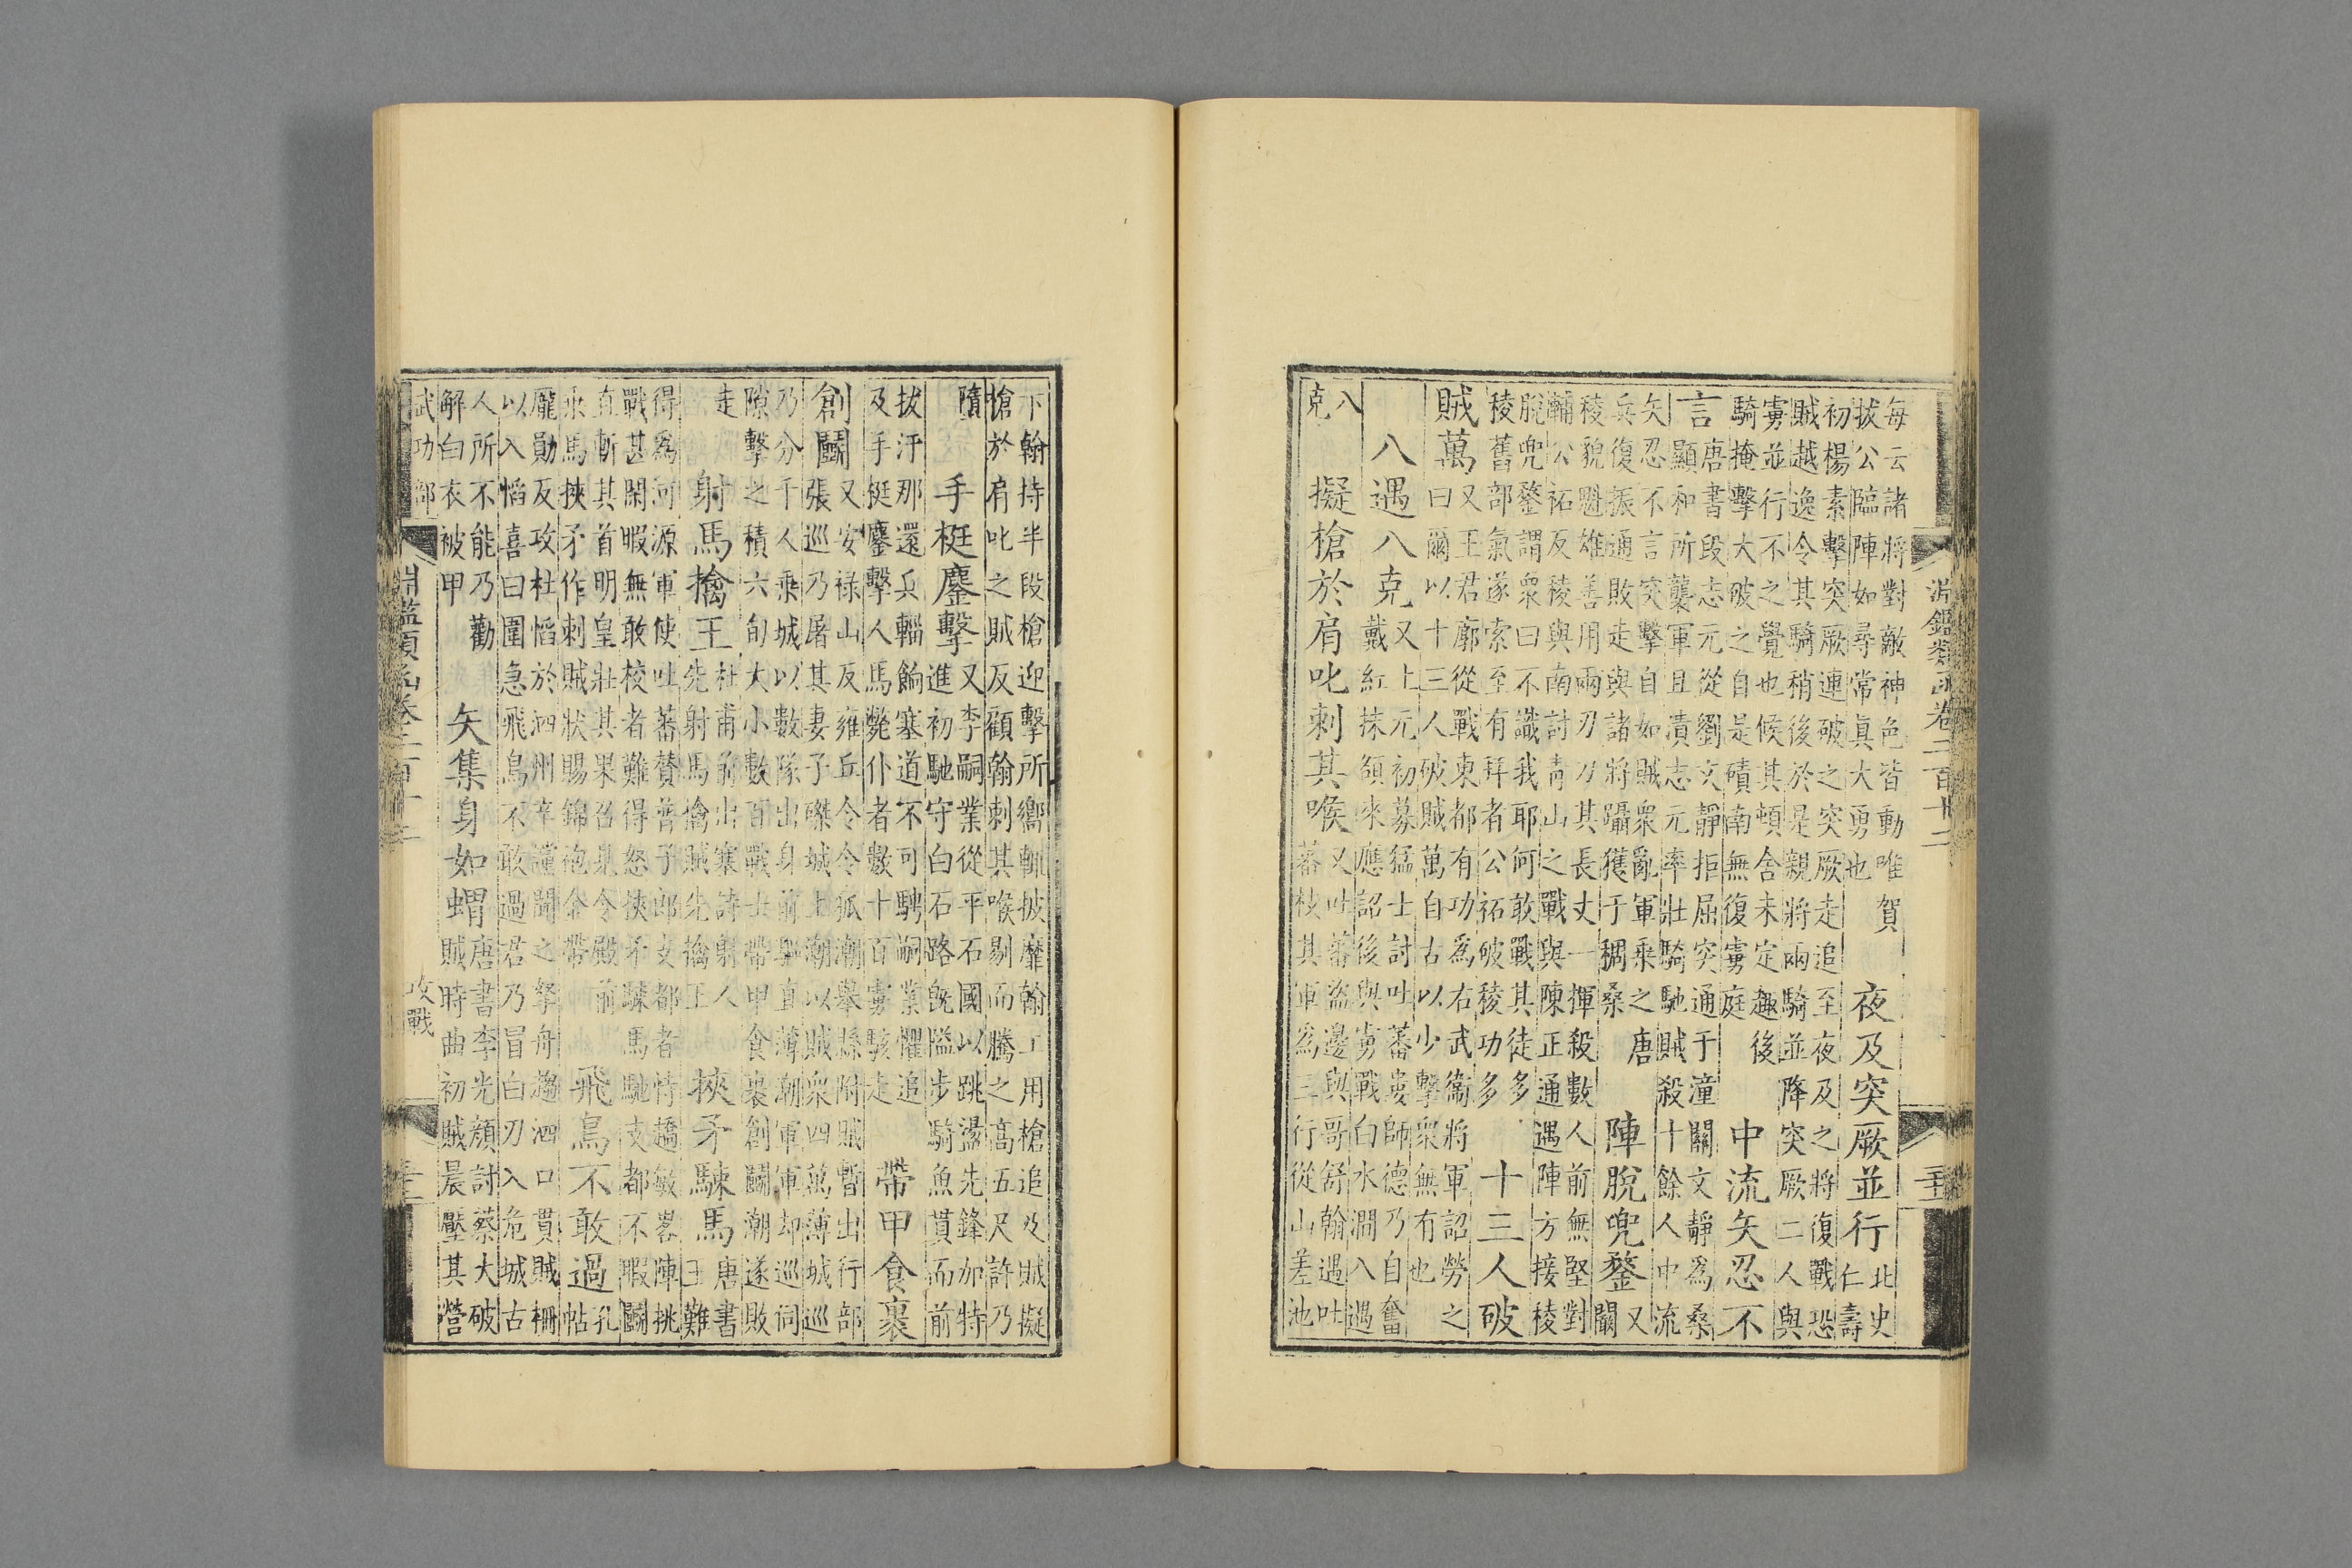 淵鑑類函卷二百十二
每云諸將對敵神色皆動唯賀
拔公臨陣如尋常真大勇也
夜及突厥並行
北史
仁壽
初楊素擊突厥連破之突厥走追至夜及之將復戰恐
賊越逸令其騎稍後於是親將兩騎並降突厥二人與
虜並行不之覺也候其頓舍未定趣後
騎掩擊大破之自是磧南無復虜庭
中流矢忍不
言
唐書段志元從劉文靜拒屈突通于潼關文靜為桑
顯和所襲軍且潰志元率壯騎馳賊殺十餘人中流
矢忍不言突擊自如賊衆亂軍乘之唐
兵復振通敗走與諸將躡獲于稠桑
陣脫兜鍪
又
闞
稜貌魁雄善用兩刃刀其長丈一揮殺數人前無堅對
輔公祏反稜與南討青山之戰與陳正通遇陣方接稜
脫兜鍪謂衆曰不識我耶何敢戰其徒多
稜舊部氣遂索至有拜者公祏破稜功多
十三人破
賊萬
又王君廓從戰東都有功為右武衞將軍詔勞之
曰爾以十三人破賊萬自古以少擊衆無有也
八遇八克
又上元初募猛士討吐蕃婁師德乃自奮
戴紅抹額來應詔後與虜戰白水澗八遇
八
克
擬槍於肩叱刺其喉
又吐蕃盜邊與哥舒翰遇吐
蕃枝其軍為三行從山差池
下翰持半段槍迎擊所嚮輒披靡翰工用槍追及賊擬
槍於肩叱之賊反顧翰刺其喉剔而騰之高五尺許乃
墮
手梃鏖擊
又李嗣業從平石國以跳盪先鋒加特
進初馳守白石路旣隘步騎魚貫而前
拔汗那還兵輜餉塞道不可騁嗣業懼追
及手梃鏖擊人馬斃仆者數十百虜駭走
帶甲食裹
創鬬
又安祿山反雍丘令令狐潮舉縣附賊暫出行部
張巡乃屠其妻子磔城上潮以賊衆四萬薄城巡
乃分千人乘城以數隊出身前驅直薄潮軍軍却巡伺
隙擊之積六旬大小數百戰士帶甲食裹創鬬潮遂敗
走
射馬擒王
杜甫前出塞詩射人
先射馬擒賊先擒王
挾矛駷馬
唐書
王難
得為河源軍使吐蕃贊普子郎支都者恃趫敏畧陣挑
戰甚閑暇無敢校者難得怒挾矛駷馬馳支都不暇鬬
直斬其首明皇壯其果召見令殿前
乘馬挾矛作刺賊狀賜錦袍金帶
飛鳥不敢過
孔
帖
龐勛反攻杜慆於泗州辛讜聞之拏舟趨泗口貫賊柵
以入慆喜曰圍急飛鳥不敢過君乃冒白刃入危城古
人所不能乃勸
解白衣被甲
矢集身如蝟
唐書李光顏討蔡大破
賊時曲初賊晨壓其營
武功部
淵鑑類函卷二百十二
攻戰